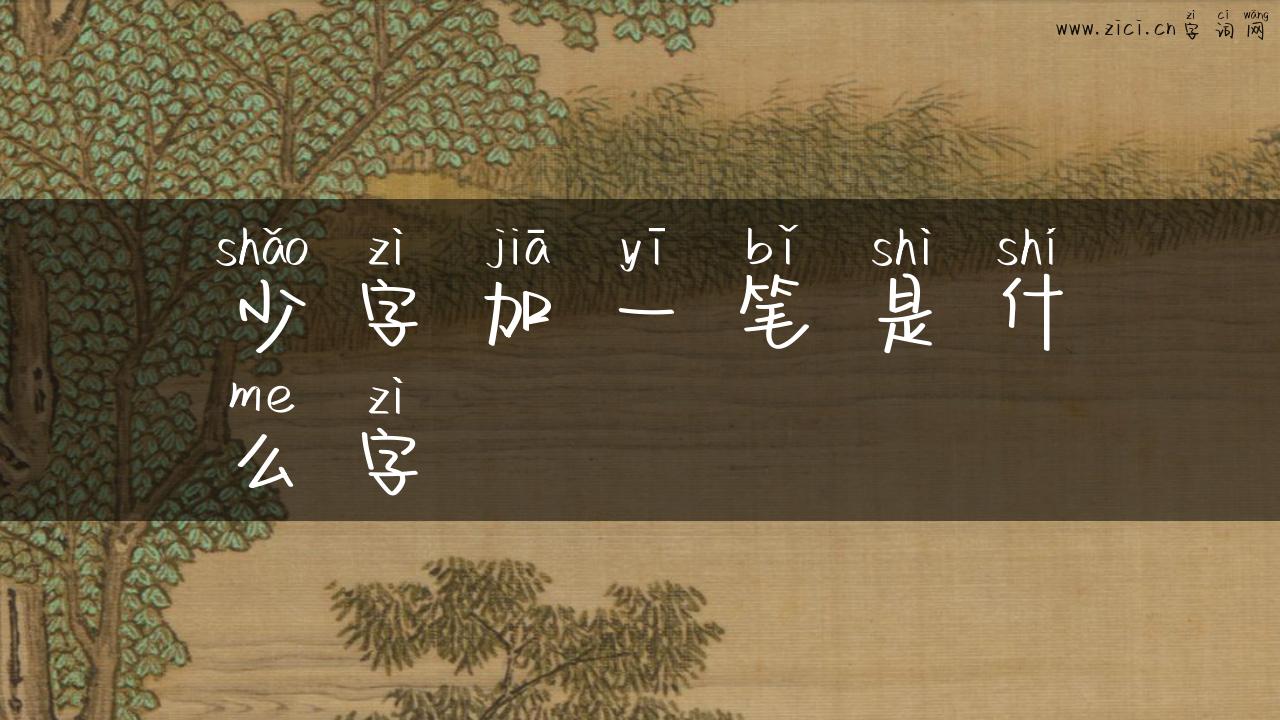 zì cí wǎng
www.zici.cn 字词网
shǎo zì jiā yī bǐ shì shí
少字加一笔是什
me zì
么字